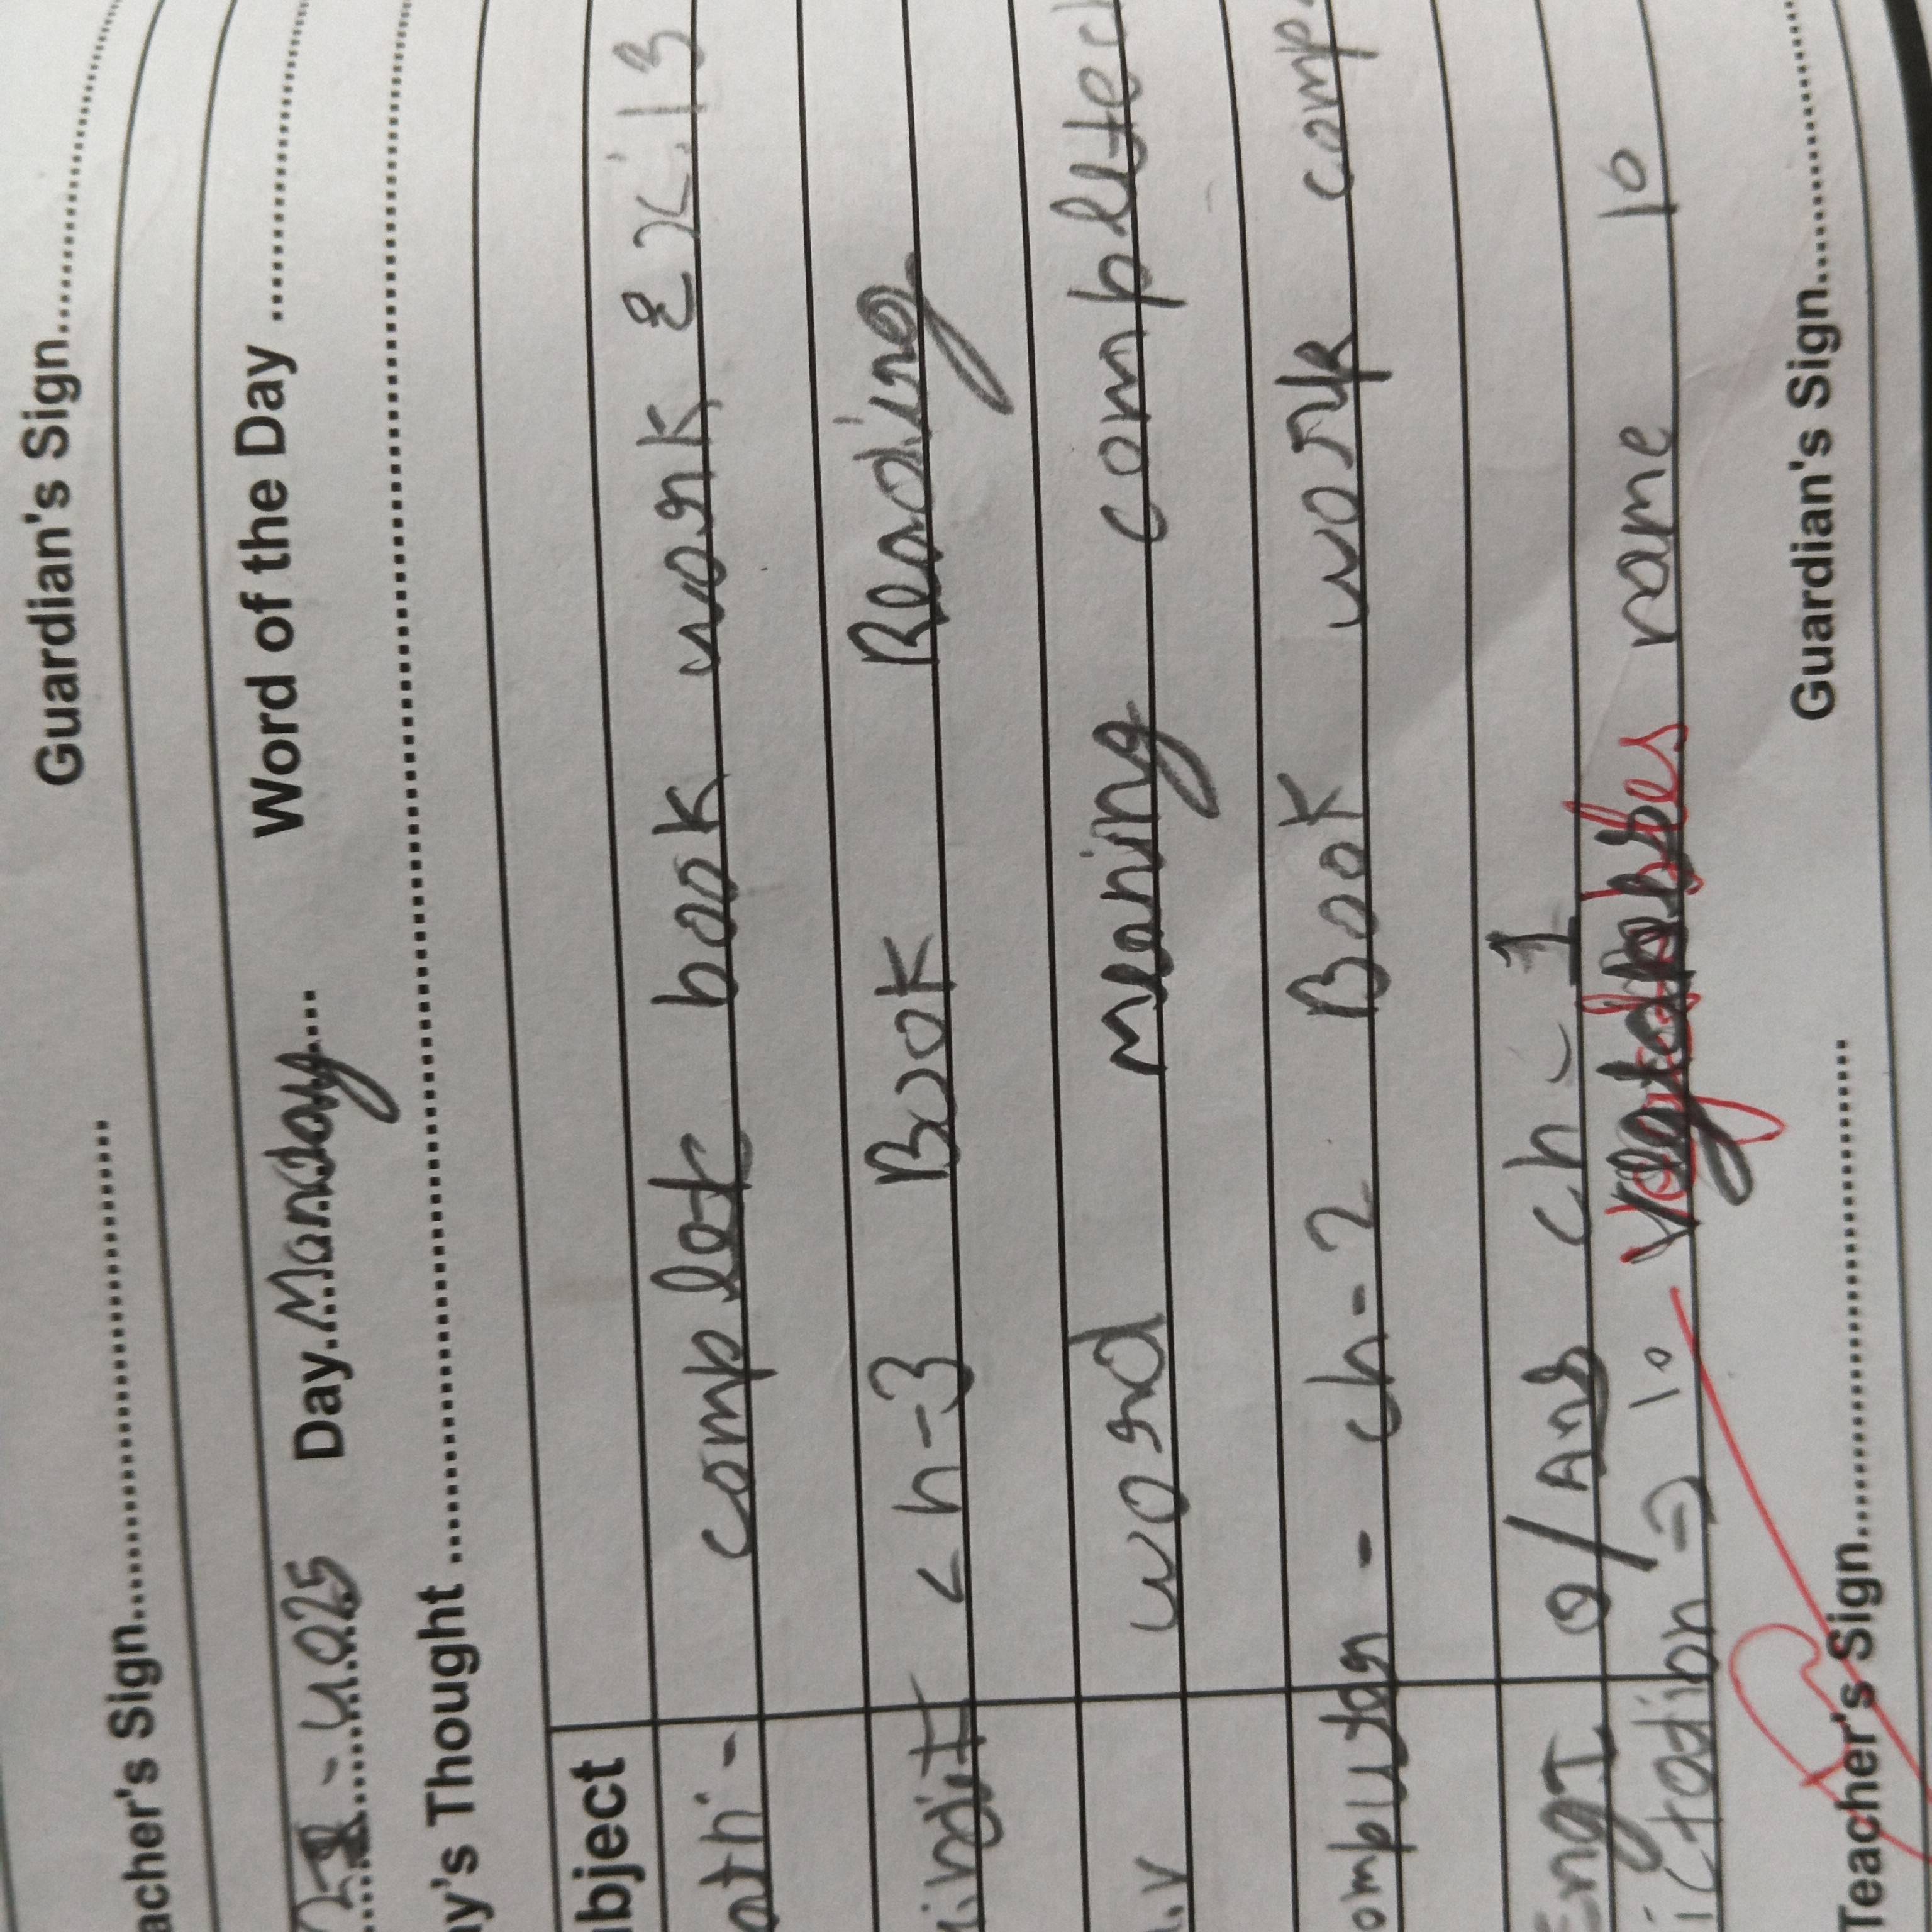 acher's Sign.................... Guardian's Sign....................
4025 Day Monday Word of the Day ....................
y's Thought ....................
bject
ath - complet book work Ex:13
indi ch-3 Book Reading
word meaning completed
omputer - ch-2 Book work comp
Engl Q/Ans ch - 1
ictation 10 Vegetables name 10
Teacher's Sign.................... Guardian's Sign....................